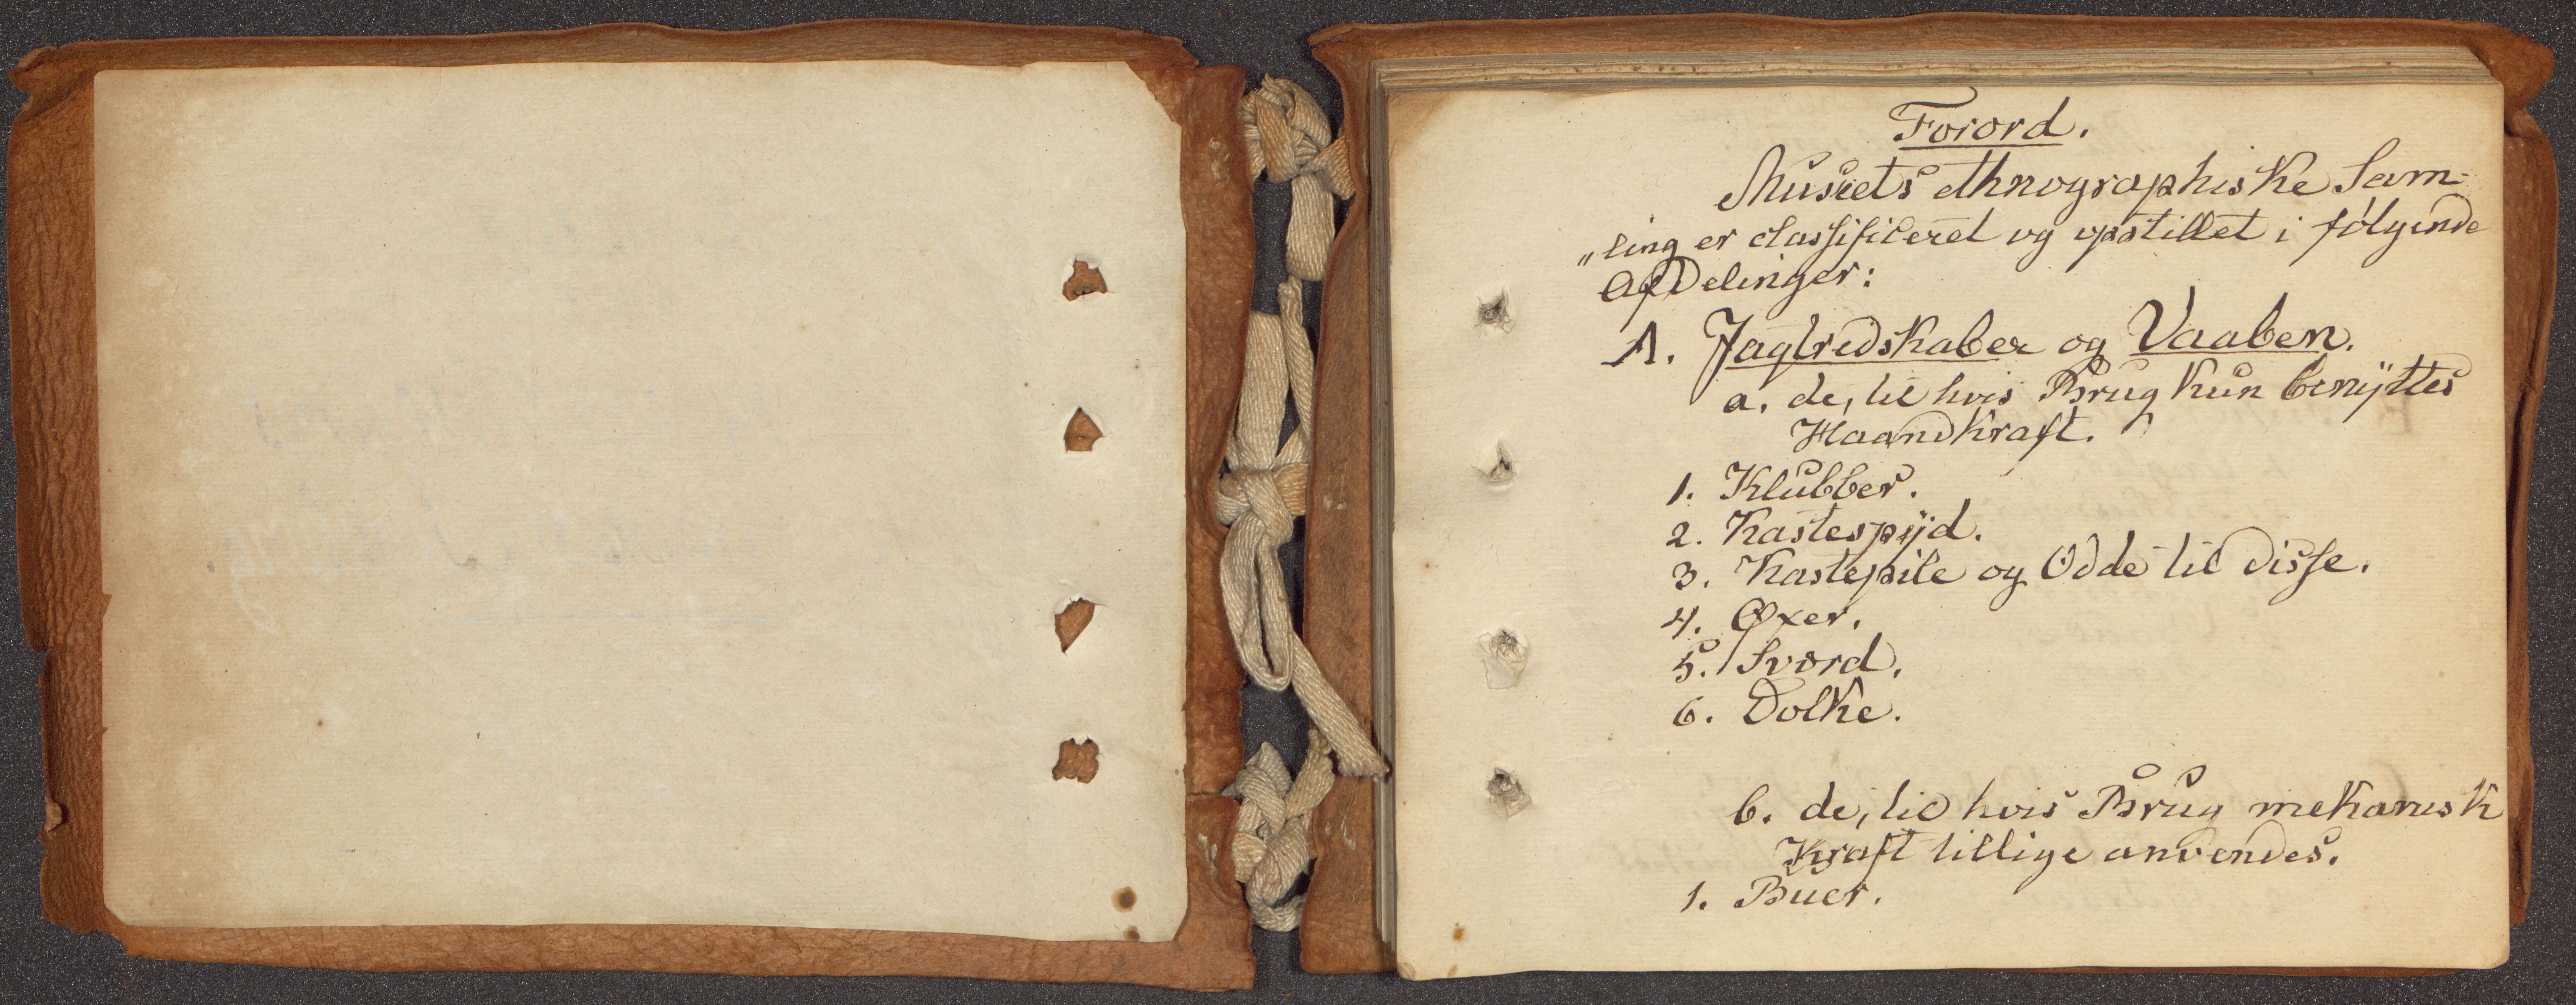 Forord.
Museets ethnographiske Sam-
„ling er classificeret og opstillet i følgende
Afdelinger:
A. Jagtredskaber og Vaaben.
a. de, til hvis Brug kun benyttes
Haandkraft.
1. Klubber.
2. Kastespyd.
3. Kastepile og Odde til disse.
4. Øxer.
5. Sværd.
6. Dolke.
b. de, til hvis Brug mekanisk
Kraft tillige anvendes.
1. Buer.